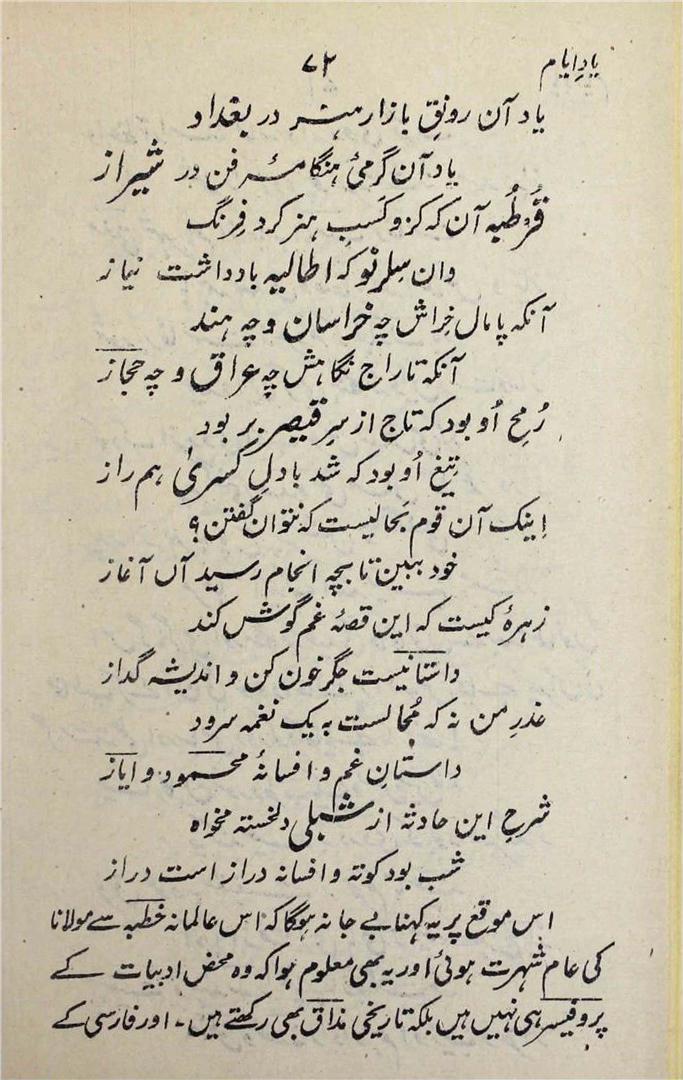 یادِ ایام ۷۲
یاد آن رونقِ بازار ہنر در بغداد
یاد آن گرمیٔ ہنگامۂ فن در شیراز
قُرطُبہ آن کہ کزو کَسبِ ہنر کرد فِرنگ
وان سِلرنُو کہ اطالیہ بادداشت نیاز
آنکہ پامال خِراش چہ خراسان وچہ ہند
آنکہ تاراج نگاہش چہ عراق و چہ حجاز
رُمحِ اُو بود کہ تاج از سرِ قیصر بر بود
تیغِ اُو بود کہ شد بادلِ کسریٰ ہم راز
اِینک آن قوم بَحالیست کہ نتوان گفتن؟
خود ببین تا بچہ انجام رسید آں آغاز
زہرۂ کیست کہ این قصۂ غم گوش کند
داستانیست جگر خون کن و اندیشہ گداز
عذرِ من نہ کہ مُحالست بہ یک نغمہ سرود
داستانِ غم و افسانۂ محمود و ایاز
شرحِ این حادثہ از شبلی دلخستہ مخواہ
شب بود کوتہ و افسانہ دراز است دراز
اس موقع پر یہ کہنا بے جا نہ ہوگا کہ اس عالمانہ خطبہ سے مولانا
کی عام شہرت ہوئی اور یہ بھی معلوم ہوا کہ وہ محض ادبیات کے
پروفیسر ہی نہیں ہیں بلکہ تاریخی مذاق بھی رکھتے ہیں۔ اور فارسی کے